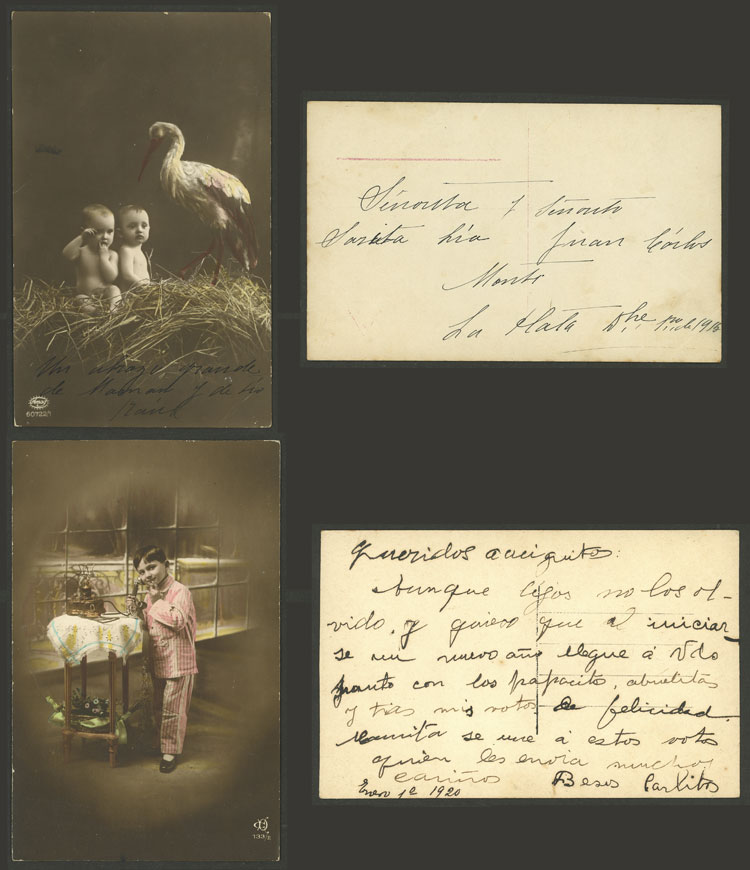 Un abrazo grande
de Maman y de tio
Raúl
60722/1
Señorita y Señorito
Sarita Lía Juan Cárlos
Monti
La Plata Dbe 1º de 19
133/2
Queridos amiguitos:
Aunque lejos no los ol-
vido, y quiero que al iniciar
se un nuevo año llegue á Vds
junto con los papacitos, abuelitas
y tias mis votos de felicidad
mamita se une á estos votos
quien les envia muchos
cariños Besos Carlitos
Enero 1º 1920